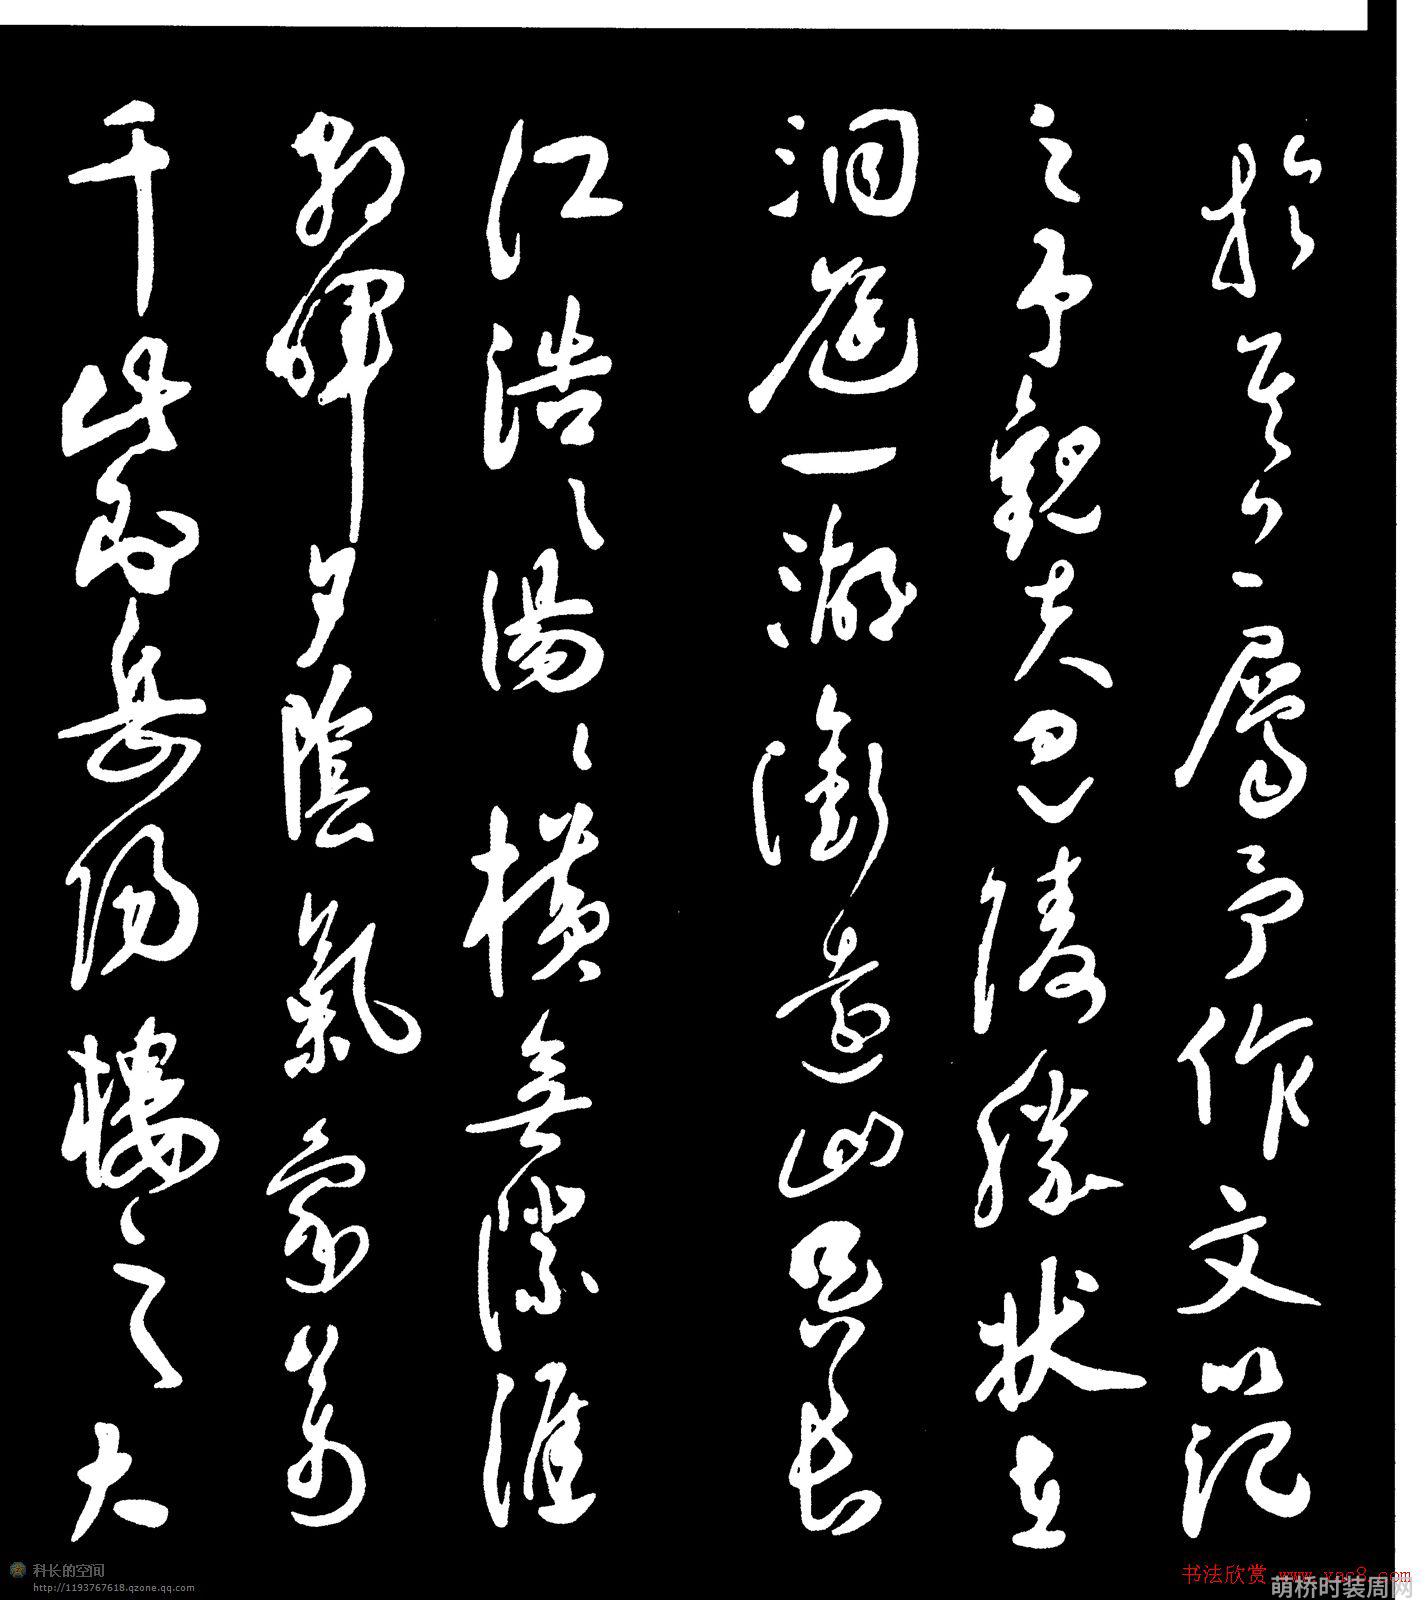 於其上屬予作文以記
之予觀夫巴陵勝狀在
洞庭一湖銜遠山吞長
江浩々湯々橫無際涯
朝暉夕陰氣象萬
千此則岳陽樓之大
科长的空间
http://1193767618.qzone.qq.com
书法欣赏 www.yac8.com
萌桥时装周网